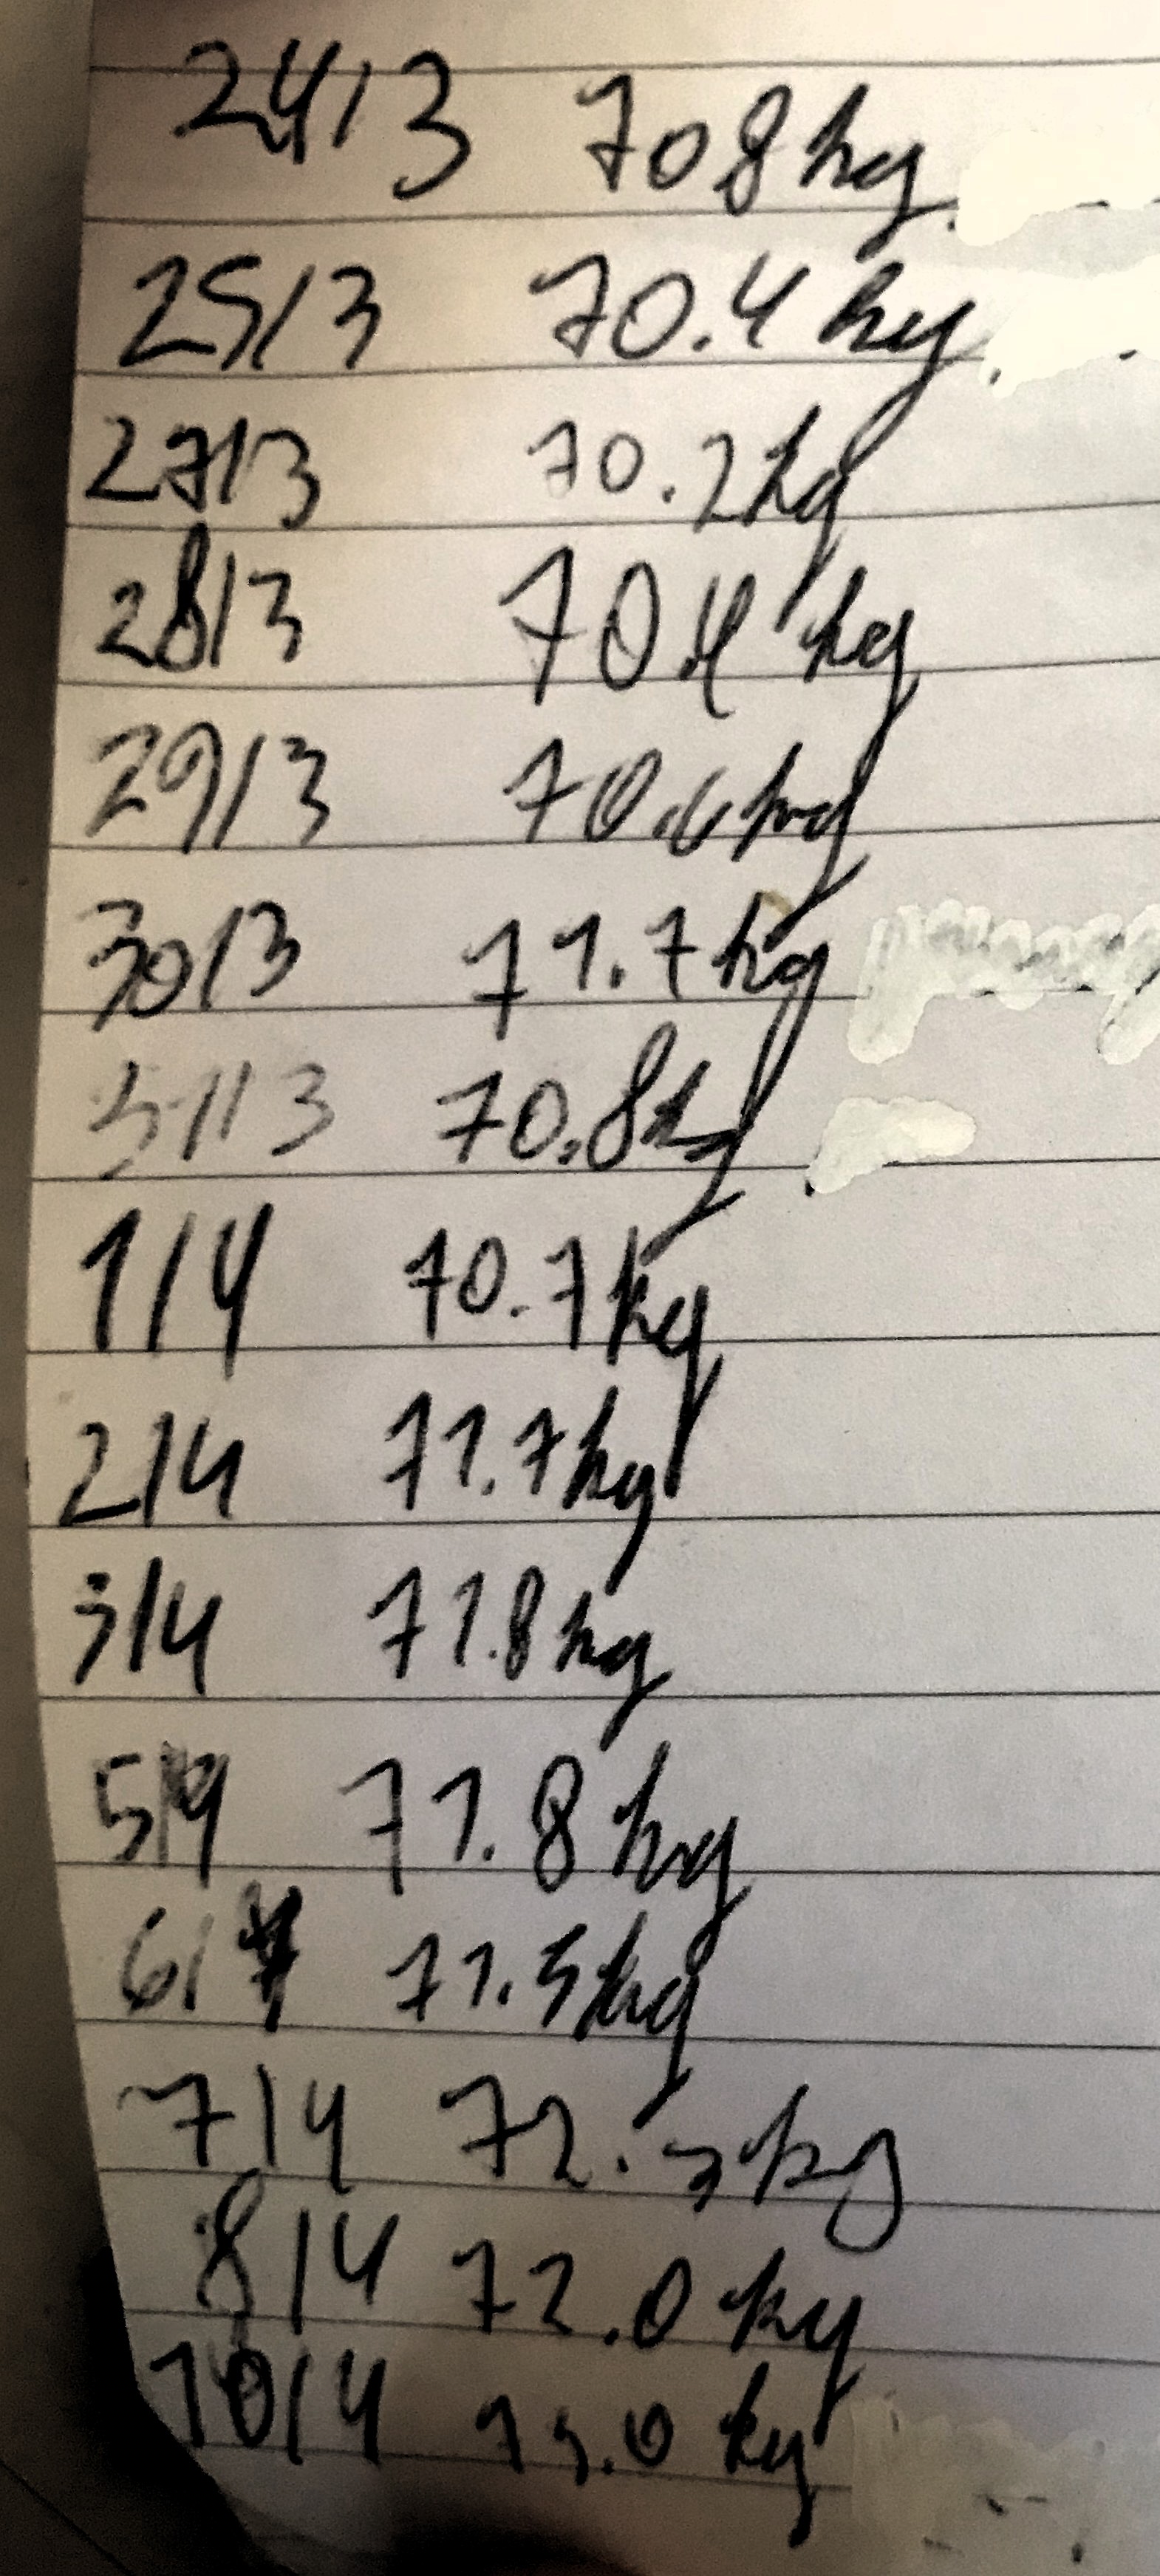 24/3 708kg.
25/3 70.4 kg.
27/3 70.2kg
28/3 70.4 kg
29/3 70.6kg
30/3 71.7kg
31/3 70.8kg.
1/4 70.7kg
2/4 71.7kg
3/4 71.8kg
5/4 71.8kg
6/4 71.5kg
7/4 72.3kg
8/4 72.0 kg
10/4 kg